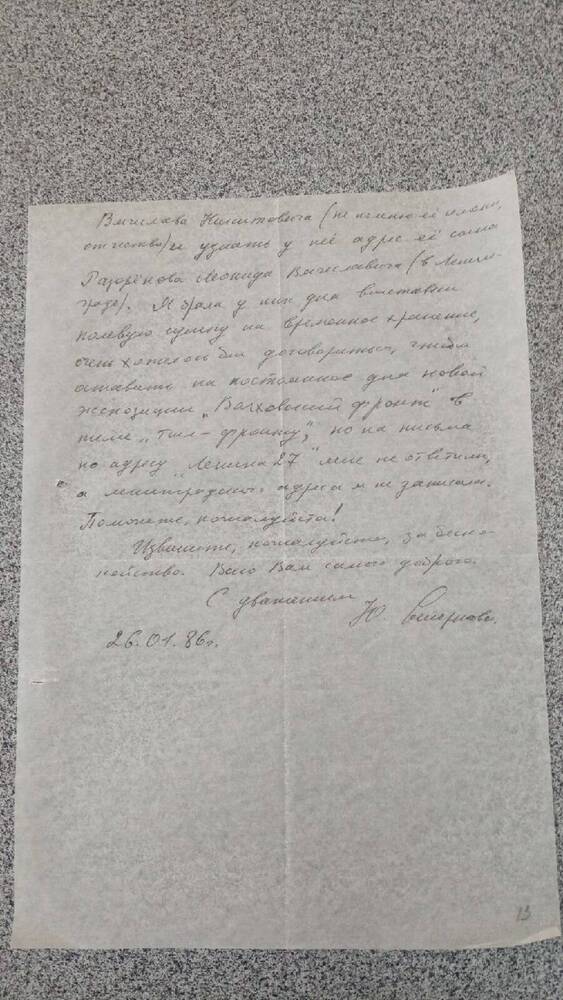 Вячеслава Никитовича (не помню её имени,
отчества) и узнать у неё адрес её сына
Разорёнова Леонида Вячеславовича (в Ленин-
граде). Я брала у них для выставки
полевую сумку на временное хранение,
очень хотелось бы договориться, чтобы
оставить на постоянное для новой
экспозиции „Волховский фронт" в
теме „Тыл – фронту", но на письма
по адресу „Ленина 27" мне не ответили,
а ленинградского адреса я не записала.
Помогите, пожалуйста!
Извините, пожалуйста, за беспо-
койство. Всего Вам самого доброго.
С уважением
Ю.
26.01.86г.
13